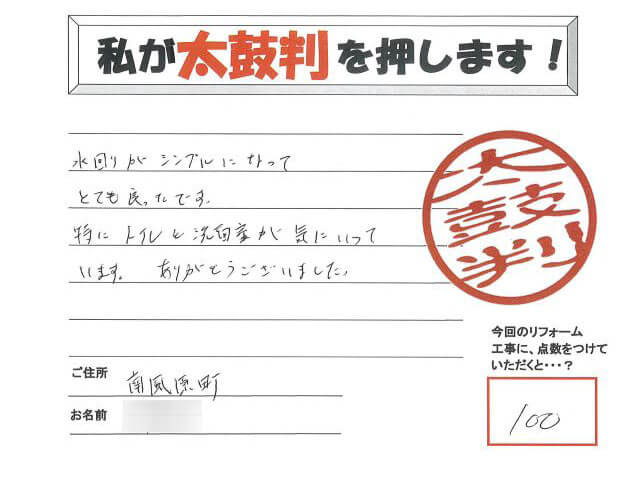 私が太鼓判を押します！
水回りがシンプルになって
とても良ったです。
特にトイレと洗面室が気にいって
います。 ありがとうございました。
太鼓判
今回のリフォーム
工事に、点数をつけて
いただくと・・・？
100
ご住所 南風原町
お名前